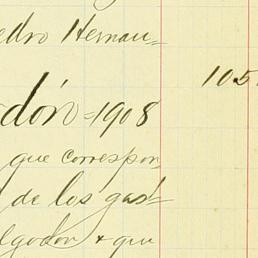 edro Hernan=
105
dón=1908
que correspon
de los gast
lgodon & que